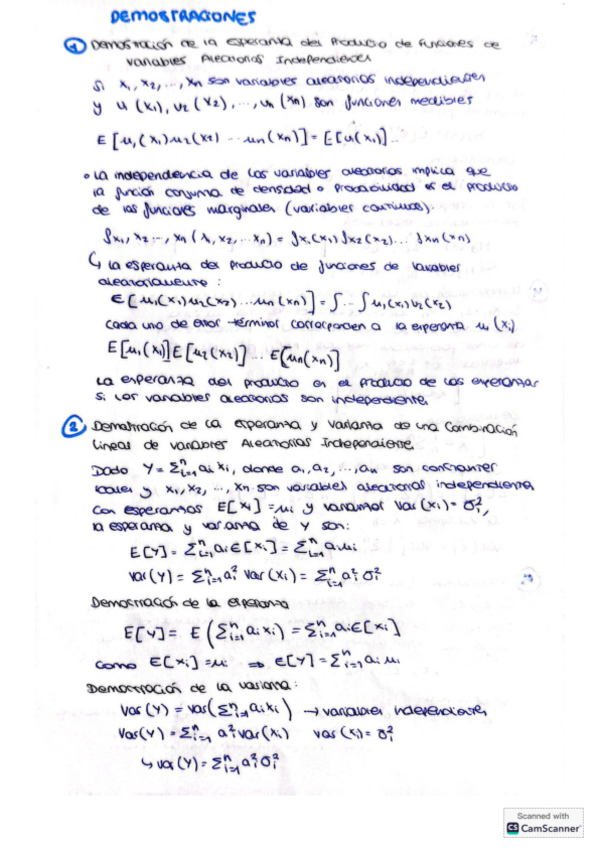 DEMOSTRACIONES
1 Demostración de la esperanza del Producto de Funciones de
Variables Aleatorias Independientes
Si x₁, x₂, ..., xn son variables aleatorias independientes
y u (x₁), u₂ (x₂), ..., un (xn) son funciones medibles
E [u₁(x₁)u₂(x₂) ... un(xn)] = E[u(x₁)]...
• La independencia de las variables aleatorias implica que
la función conjunta de densidad o probabilidad es el producto
de las funciones marginales (variables continuas).
fx₁, x₂ ..., xn (x₁, x₂, ... xn) = fx₁(x₁) fx₂(x₂)... fxn(xn)
↳ la esperanza del producto de funciones de variables
aleatoriamente :
E[u₁(x₁)u₂(x₂) ... un(xn)] = ∫...∫ u₁(x₁)u₂(x₂)
Cada uno de estos términos corresponden a la esperanza u₁(x₁)
E[u₁(x₁)] E[u₂(x₂)] ... E[un(xn)]
La esperanza del producto es el producto de las esperanzas
si las variables aleatorias son independiente.
2 Demostración de la esperanza y varianza de una Combinación
Lineas de variables Aleatorias Independiente.
Dado Y = Σⁿᵢ₌₁ aᵢ xᵢ, donde a₁, a₂, ..., an son constantes
reales y x₁, x₂, ..., xn son variables aleatorias independientes
con esperanzas E[xᵢ] = uᵢ y varianzas Var(xᵢ) = σᵢ²,
la esperanza y varianza de Y son:
E[Y] = Σⁿᵢ₌₁ aᵢE[xᵢ] = Σⁿᵢ₌₁ aᵢuᵢ
Var(Y) = Σⁿᵢ₌₁ aᵢ² Var(xᵢ) = Σⁿᵢ₌₁ aᵢ² σᵢ²
Demostración de la esperanza
E[Y] = E (Σⁿᵢ₌₁ aᵢxᵢ) = Σⁿᵢ₌₁ aᵢE[xᵢ]
como E[xᵢ] = uᵢ ⇒ E[Y] = Σⁿᵢ₌₁ aᵢ uᵢ
Demostración de la varianza:
Var(Y) = Var(Σⁿᵢ₌₁ aᵢxᵢ) → variables independientes
Var(Y) = Σⁿᵢ₌₁ a² Var(xᵢ) Var(xᵢ) = σᵢ²
↳ Var(Y) = Σⁿᵢ₌₁ aᵢ² σᵢ²
Scanned with
CS CamScanner